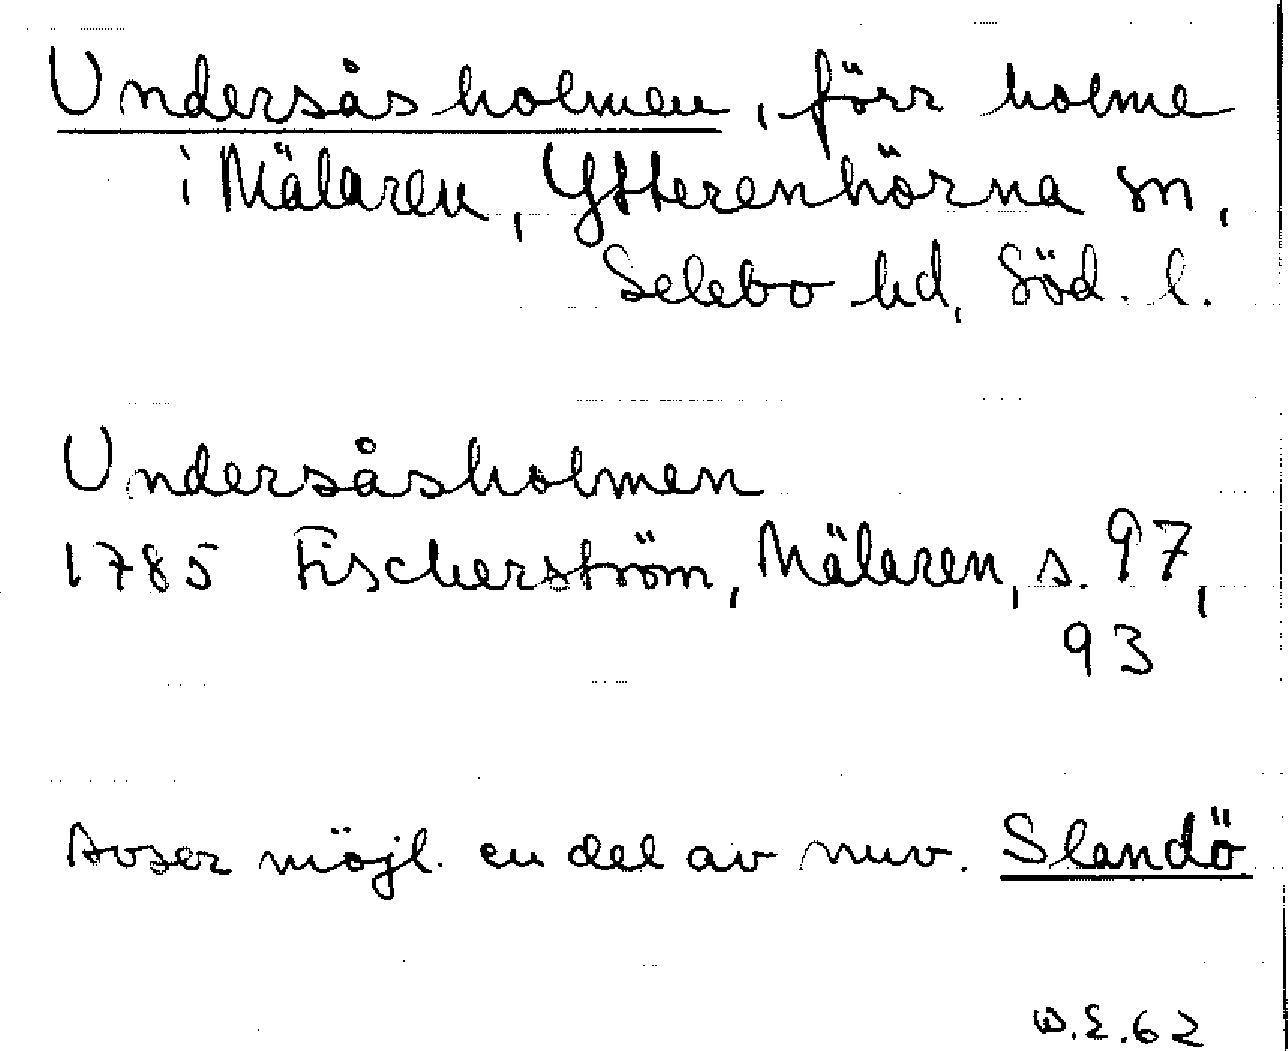 Undersåsholmen, förr holme
i Mälaren, Ytterenhörna sn,
Selebo hd, Söd. l.
Undersåsholmen
1785 Fischerström, Mälaren, s. 97,
93
Avser möjl. en del av nuv. Slandö
W.E.62